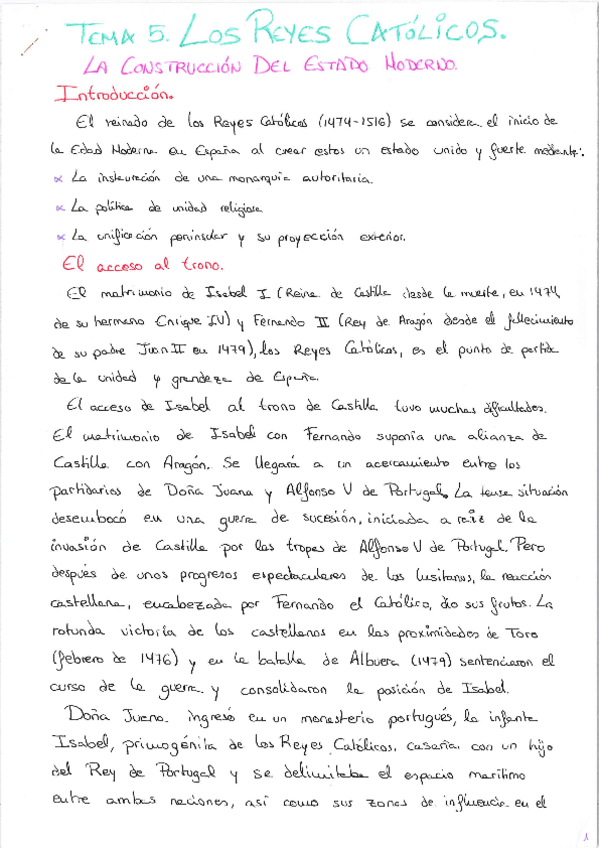 TEMA 5. LOS REYES CATÓLICOS.
LA CONSTRUCCIÓN DEL ESTADO MODERNO.
Introducción.
El reinado de los Reyes Católicos (1474-1516) se considera el inicio de
la Edad Moderna en España al crear estos un estado unido y fuerte mediante:
× La instauración de una monarquía autoritaria.
× La política de unidad religiosa
× La unificación peninsular y su proyección exterior.
El acceso al trono.
El matrimonio de Isabel I (Reina de Castilla desde la muerte, en 1474,
de su hermano Enrique IV) y Fernando II (Rey de Aragón desde el fallecimiento
de su padre Juan II en 1479), los Reyes Católicos, es el punto de partida
de la unidad y grandeza de España.
El acceso de Isabel al trono de Castilla tuvo muchas dificultades.
El matrimonio de Isabel con Fernando suponía una alianza de
Castilla con Aragón. Se llegará a un acercamiento entre los
partidarios de Doña Juana y Alfonso V de Portugal. La tensa situación
desembocó en una guerra de sucesión, iniciada a raíz de la
invasión de Castilla por las tropas de Alfonso V de Portugal. Pero
después de unos progresos espectaculares de los lusitanos, la reacción
castellana, encabezada por Fernando el Católico, dio sus frutos. La
rotunda victoria de los castellanos en las proximidades de Toro
(febrero de 1476) y en la batalla de Albuera (1479) sentenciaron el
curso de la guerra y consolidaron la posición de Isabel.
Doña Juana ingresó en un monasterio portugués, la infanta
Isabel, primogénita de los Reyes Católicos, casaría con un hijo
del Rey de Portugal y se delimitaba el espacio marítimo
entre ambas naciones, así como sus zonas de influencia en el
1